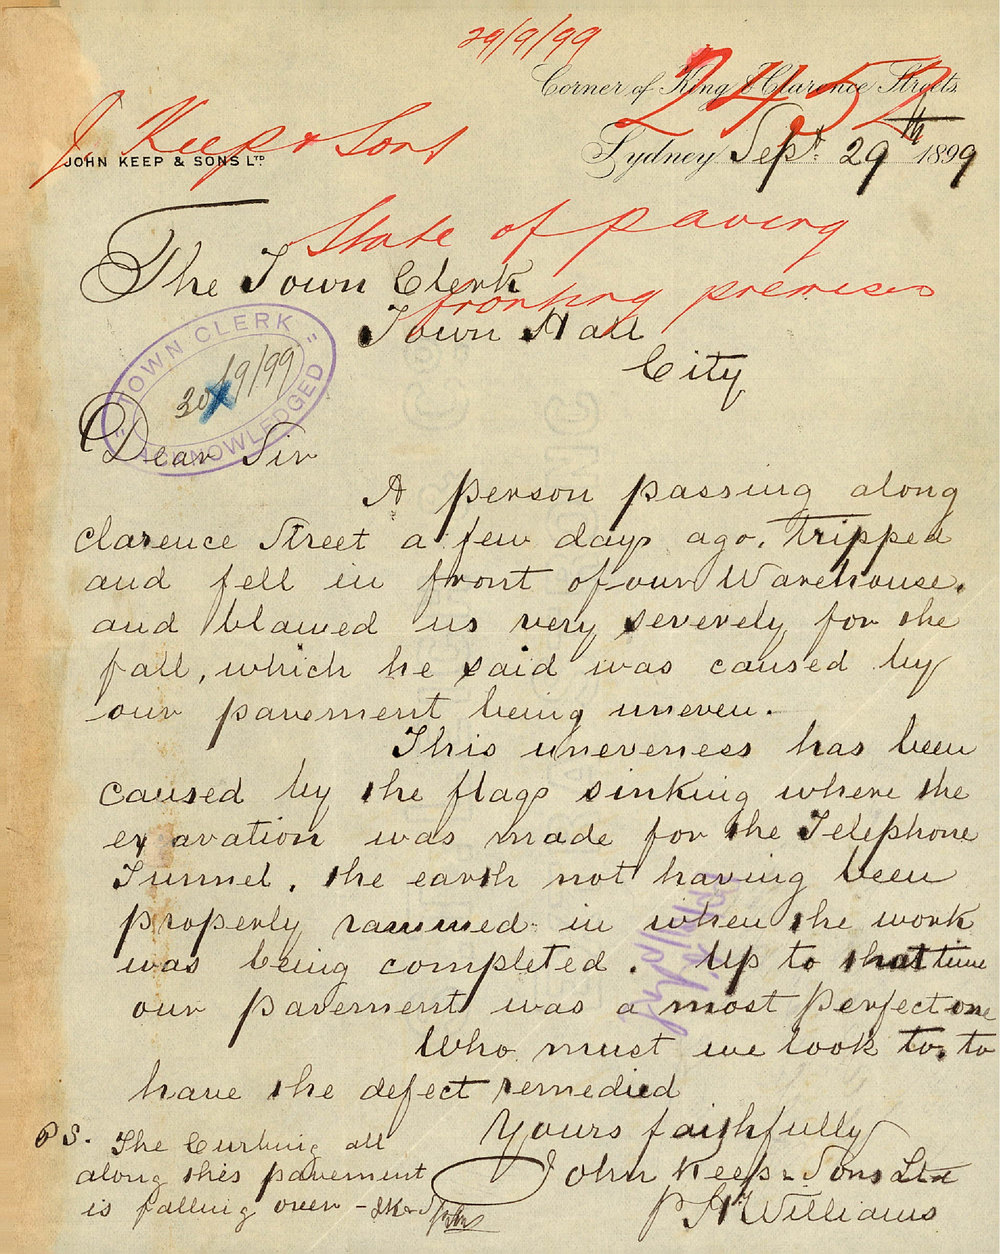 29/9/99
Corner of King & Clarence Streets
2452
J. Keep & Sons
JOHN KEEP & SONS LTD
Sydney Sept. 29th 1899
State of paving
fronting premises
The Town Clerk
Town Hall
City
"TOWN CLERK"
30/9/99
ACKNOWLEDGED
Dear Sir
A person passing along
Clarence Street a few days ago, tripped
and fell in front of our Warehouse,
and blamed us very severely for the
fall, which he said was caused by
our pavement being uneven.
This uneveness has been
caused by the flags sinking where the
exavation was made for the Telephone
Tunnel, the earth not having been
properly rammed in when the work
was being completed. Up to that time
our pavement was a most perfect one
Who must we look to, to
have the defect remedied
Yours faithfully
John Keep & Sons Ltd
P H Williams
PS. The Curbing all
along this pavement
is falling over - JK & S